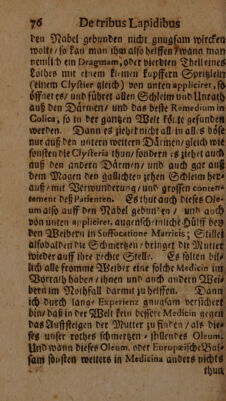 76 De tribus Lapidibus
den Nabel gebunden nicht gnugsam wircken
wolte/ so kan man ihm also helffen/ wann man
nemlich ein Dragmam, oder vierdten Theil eines
Lothes mit einem kleinen kupffern Spritzlein
(einem Clystier gleich) von unten appliciret, so
öffnet es/ und führet allen Schleim und Unrath
auß den Därmen/ und das beste Remedium in
Colica, so in der gantzen Welt köñte gefunden
werden. Dann es ziehet nicht all in alles böse
nur auß den untern weitern Därmen/ gleich wie
sonsten die Clysteria thun/ sondern is ziehet auch
auß den andern Därmen/ und auch gar auß
dem Magen den gallichten zehen Schleim her-
auß/ mit Verwunderung/ und grossen conten-
tement deß Patienten. Es thut auch dieses Ole-
um also auff den Nabel gebunden/ und auch
von unten appliciret, augenscheinliche Hülff bey
den Weibern in Suffocatione Matricis; Stillet
alsobalden die Schmertzen/ bringet die Mutter
wieder auff ihre rechte Stelle. Es solten bil-
lich alle fromme Weiber eine solche Medicin im
Vorrath haben/ ihnen und auch andern Wei-
bern im Nothfall darmit zu helffen. Dann
ich durch lange Experienz gnugsam versichert
bin/ daß in der Welt kein bessere Medicin gegen
das Auffsteigen der Mutter zu finden/ als die-
ses unser rothes schmertzen/ stillendes Oleum.
Und wann dieses Oleum, oder Europæische Bal-
sam sonsten weiters in Medicina anders nichts
thun